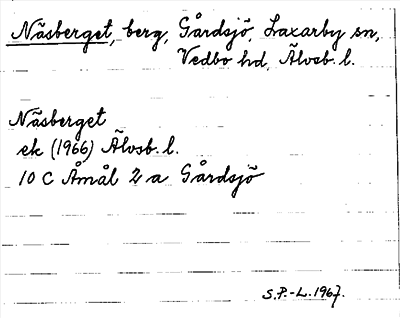 Näsberget, berg, Gårdsjö, Laxarby sn,
Vedbo hd, Älvsb. l.
Näsberget
ek (1966) Älvsb. l.
10 C Åmål 2 a Gårdsjö
S.P.-L. 1967.